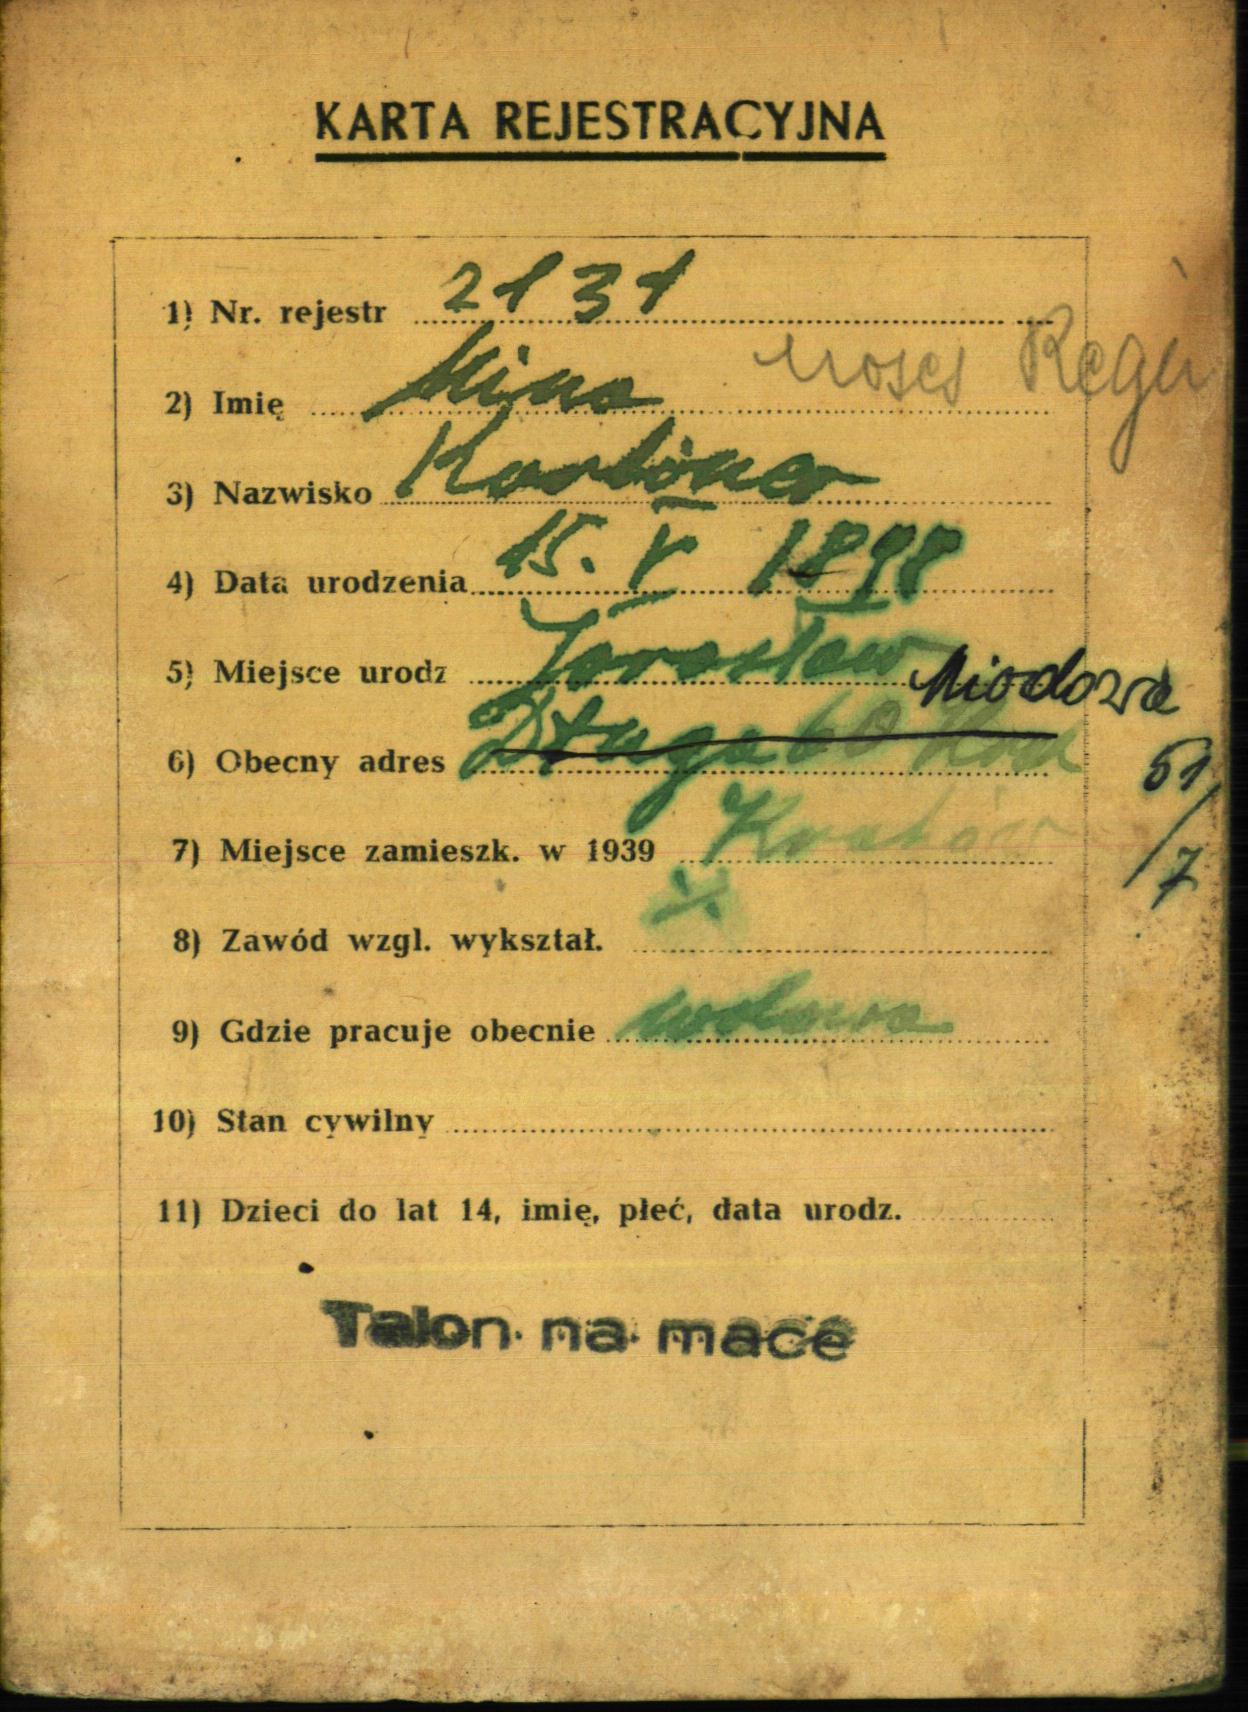 KARTA REJESTRACYJNA
1) Nr. rejestr 2131
moses Regi
2) Imię Mina
3) Nazwisko
4) Data urodzenia 15. V 1898
5) Miejsce urodz Jarosław
Miodowa
6) Obecny adres Długa 60 Krak
51/7
7) Miejsce zamieszk. w 1939 Kraków
8) Zawód wzgl. wykształ.
9) Gdzie pracuje obecnie
10) Stan cywilny
11) Dzieci do lat 14, imię, płeć, data urodz.
Talon na mace